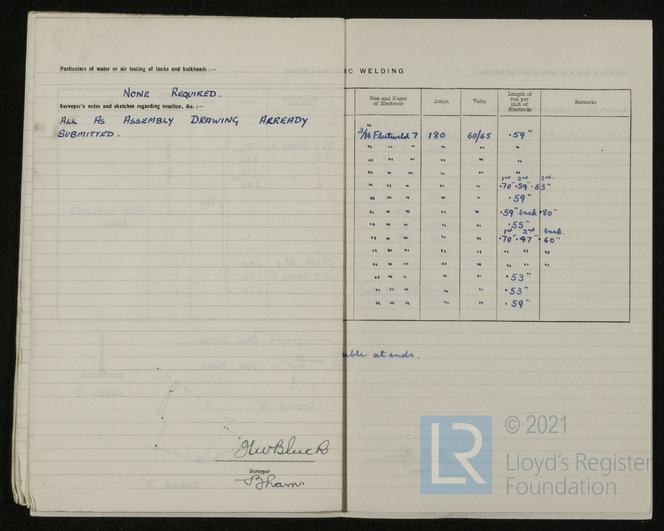 Particulars of water or air testing of tanks and bulkheads :—
NONE REQUIRED.
Surveyor's notes and sketches regarding erection, &c. :—
ALL AS ASSEMBLY DRAWING ARREADY
SUBMITTED.
Surveyor
B'ham.
RC WELDING
Size and Name of Electrode Amps. Volts Length of run per inch of Electrode Remarks
3/16 Fleetweld 7 180 60/65 .59"
" " " " " "
" " " " " "
1st 2nd 3rd
" " " " " .70" .59" .63"
" " " " " .59"
" " " " " .59" back .80"
.55"
1st 2nd back.
" " " " " .70" .47" .60"
" " " " " " " "
" " " " " " " "
" " " " " .53"
" " " " " .53"
" " " " " .59"
uble at ends.
© 2021
LR
Lloyd's Register
Foundation